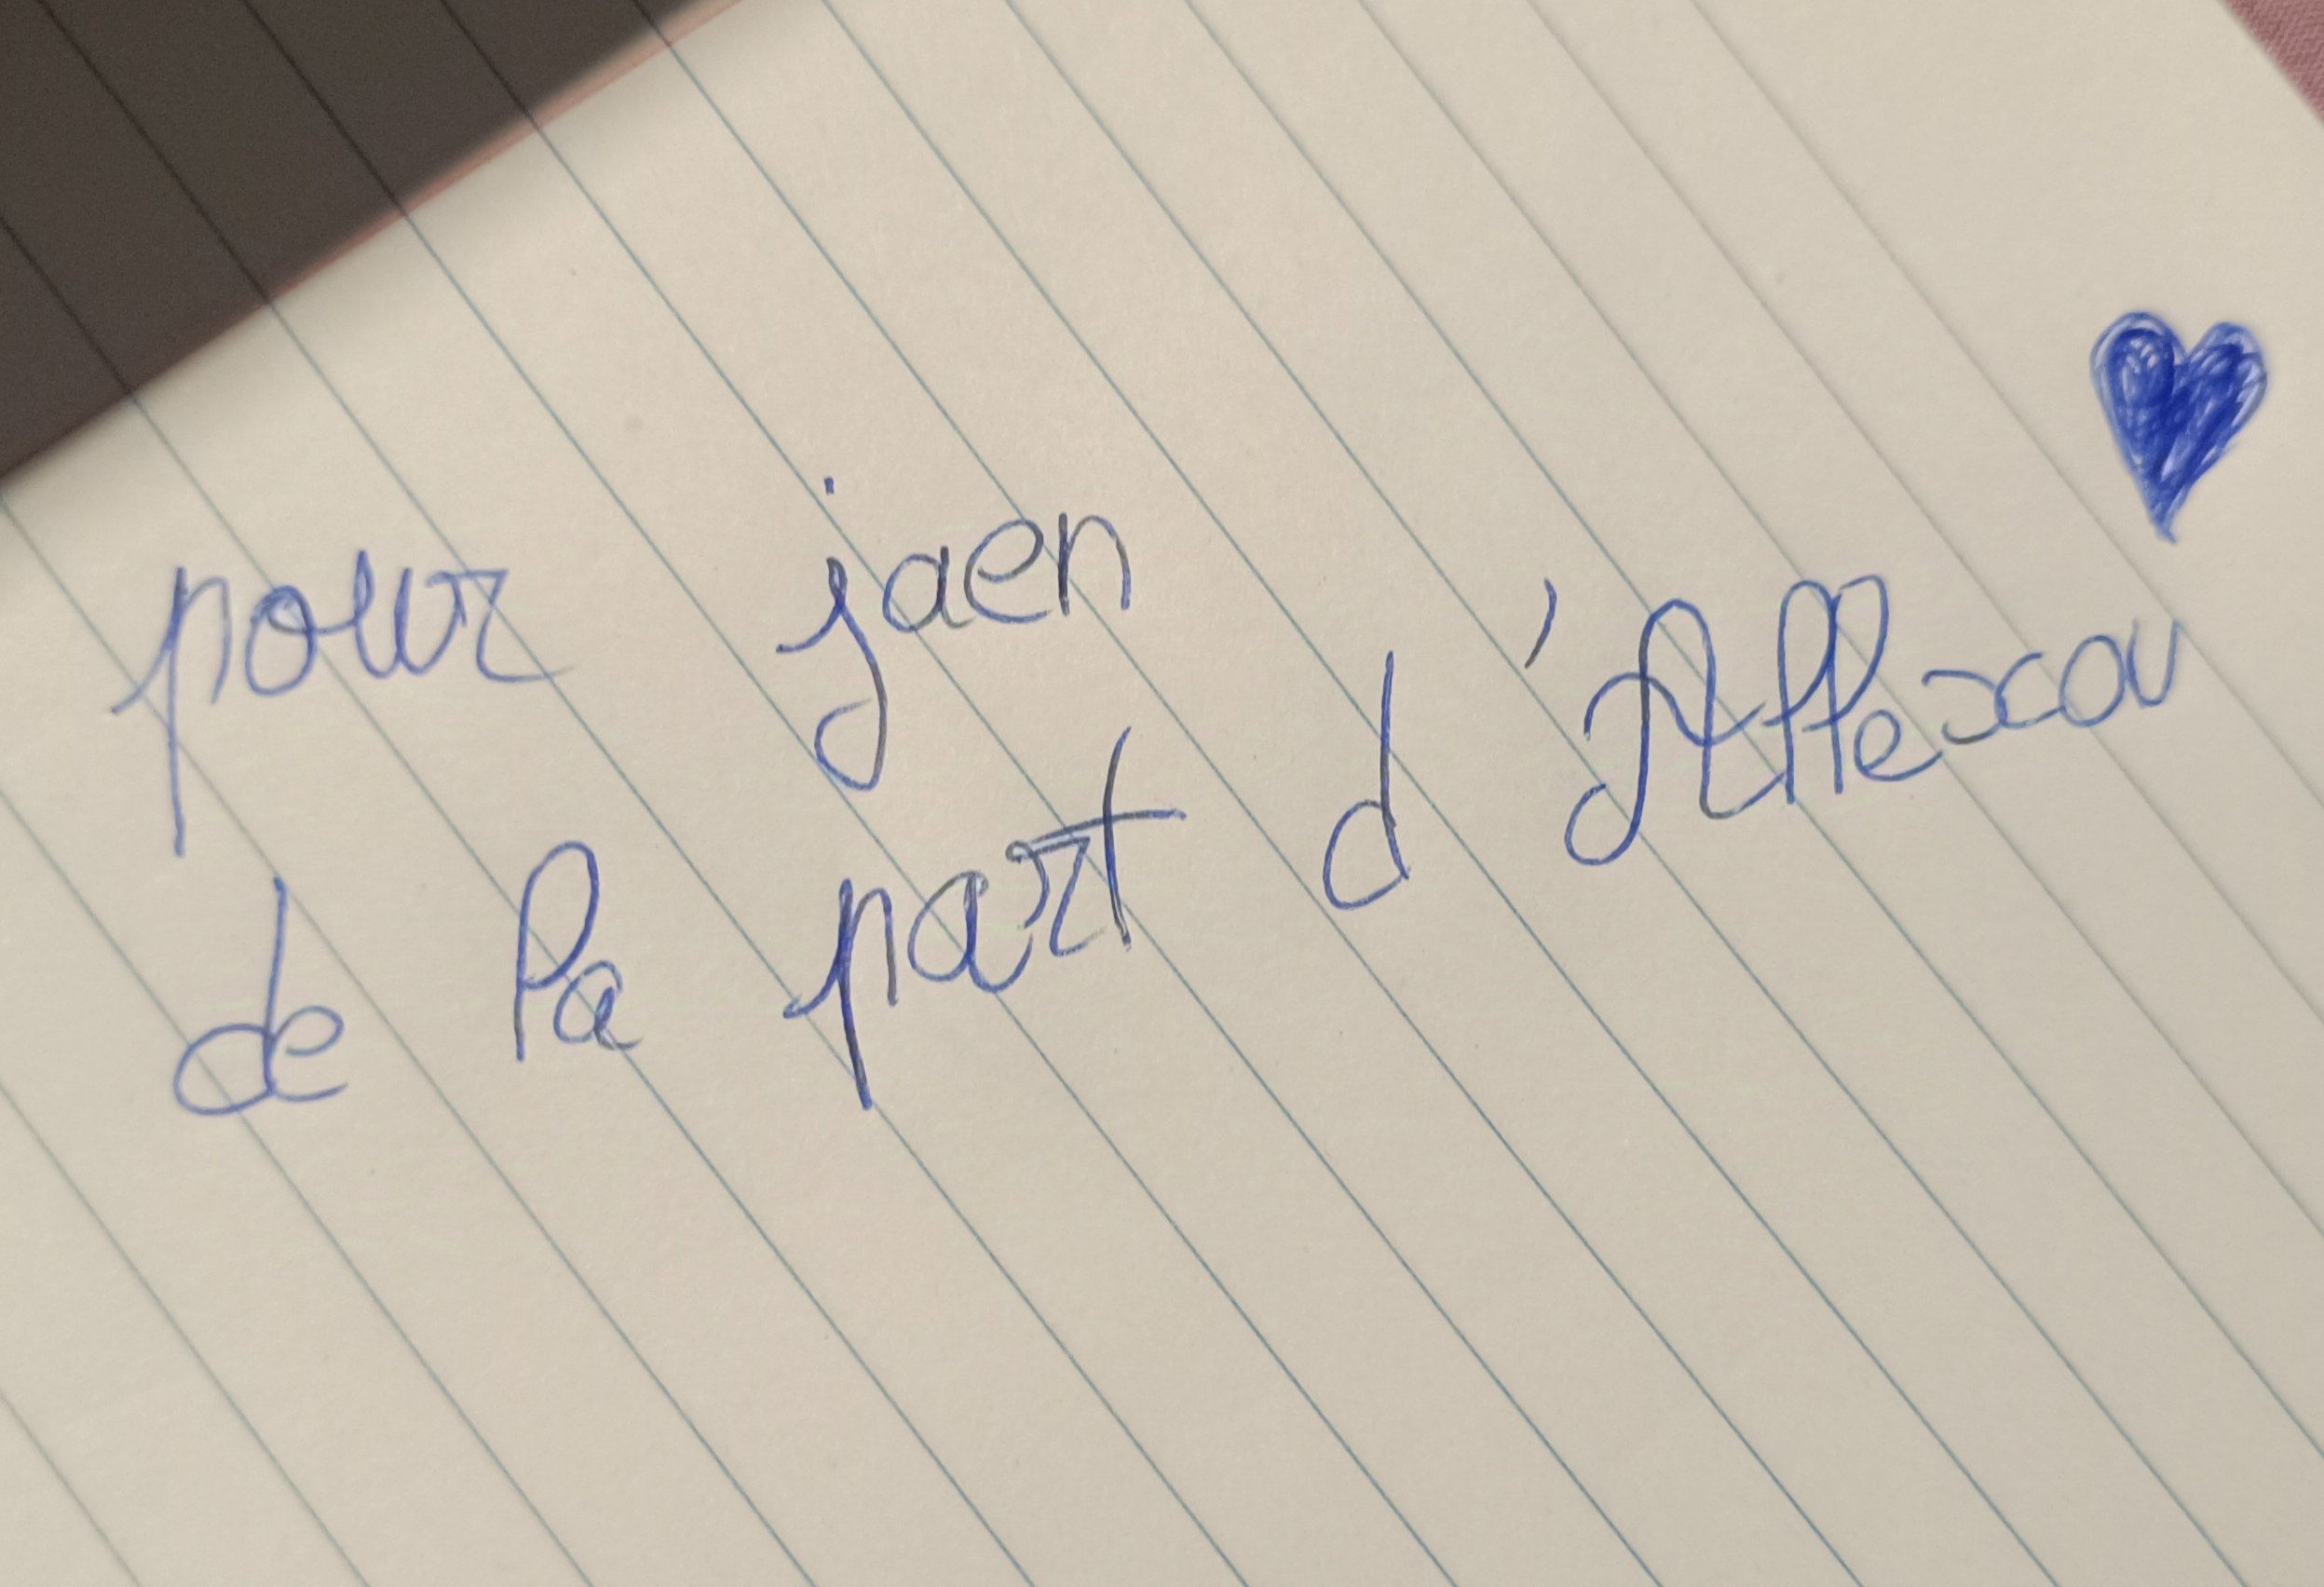 pour jaen
de la part d'Allexou